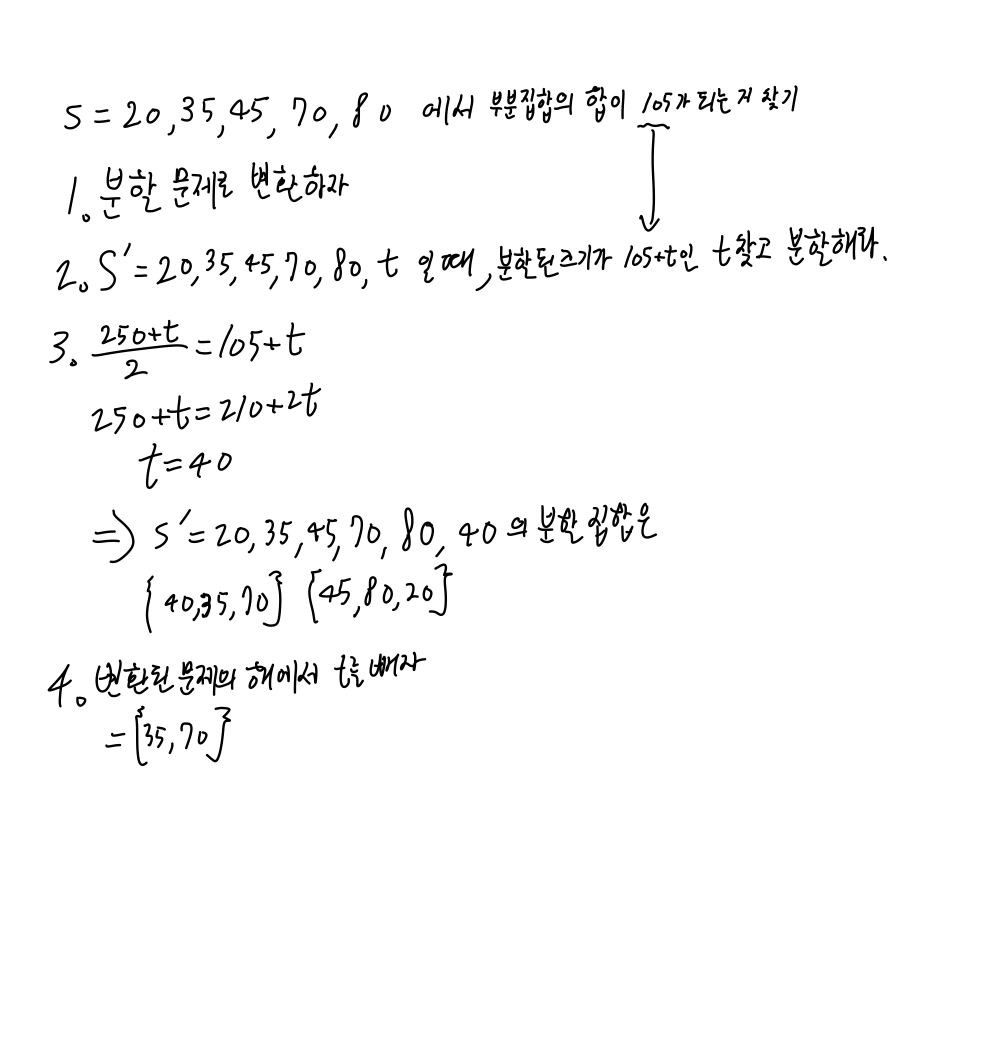 S = 20, 35, 45, 70, 80 에서 부분집합의 합이 105가 되는거 찾기
1. 분할 문제로 변환하자
2. S' = 20, 35, 45, 70, 80, t 일때, 분할된크기가 105+t인 t찾고 분할해라.
3. (250+t)/2 = 105+t
250+t = 210+2t
t = 40
⇒ S' = 20, 35, 45, 70, 80, 40 의 분할 집합은
{40, 35, 70} {45, 80, 20}
4. 변환된 문제의 해에서 t를 빼자
= {35, 70}